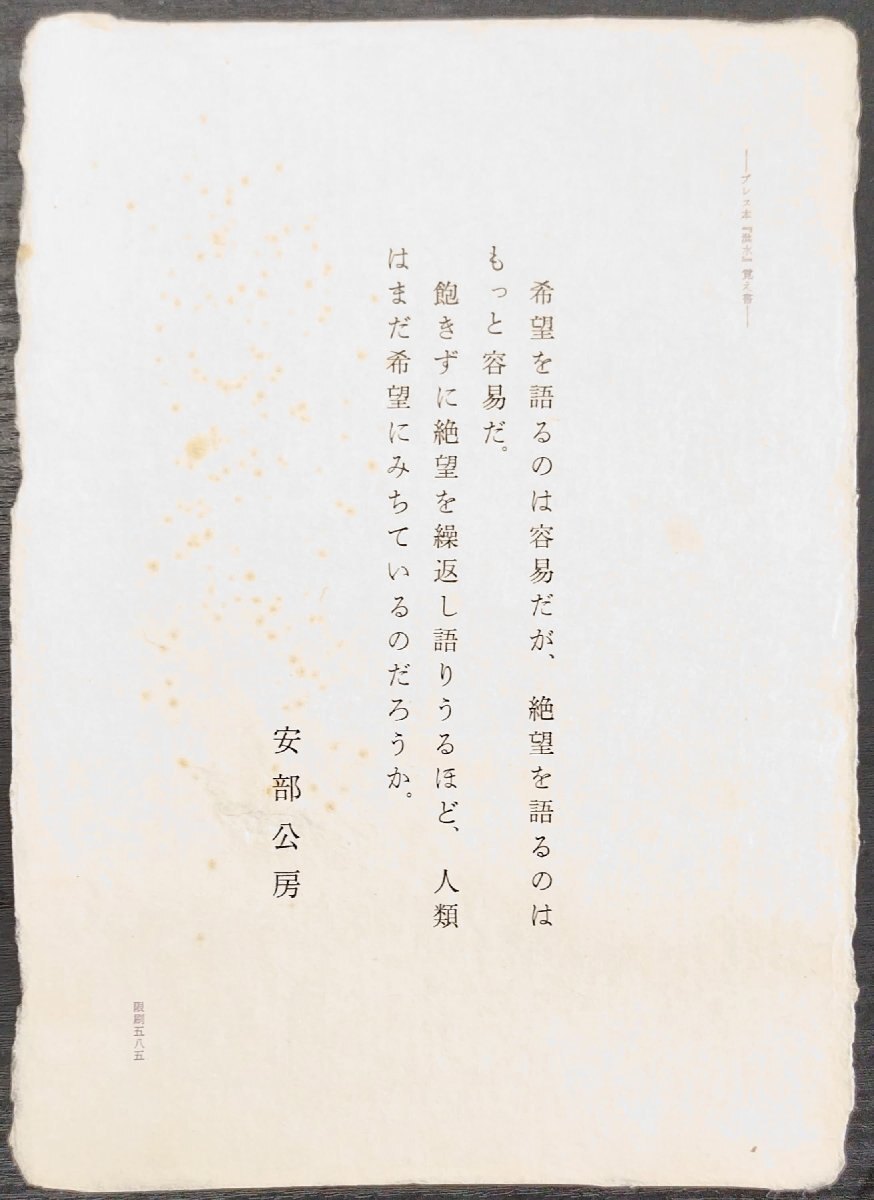 ――プレス本『洪水』覚え書――
希望を語るのは容易だが、絶望を語るのは
もっと容易だ。
飽きずに絶望を繰返し語りうるほど、人類
はまだ希望にみちているのだろうか。
安部公房
限刷五八五